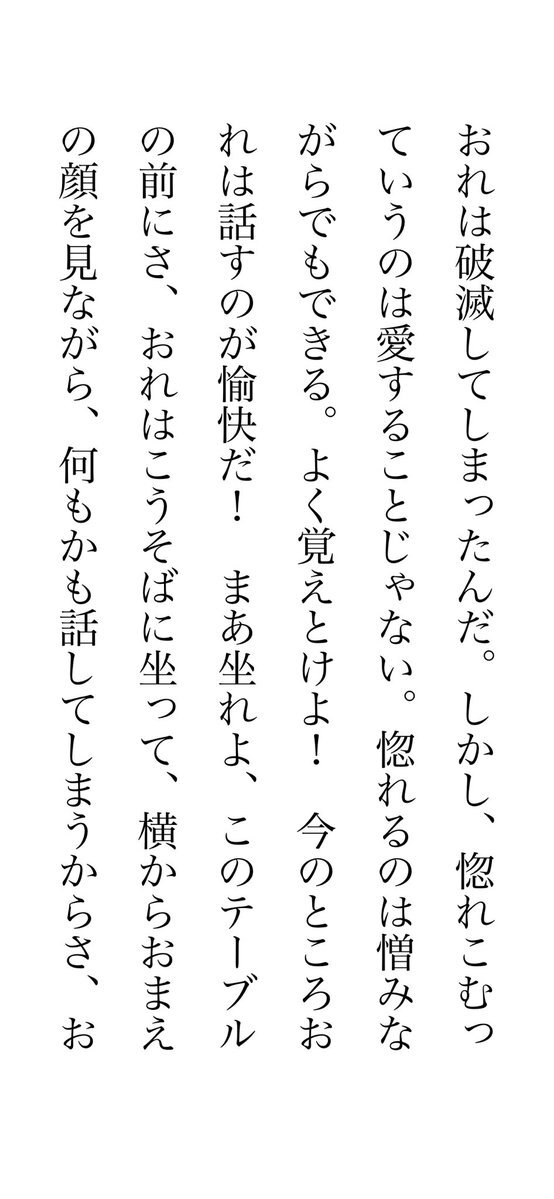 おれは破滅してしまったんだ。しかし、惚れこむっ
ていうのは愛することじゃない。惚れるのは憎みな
がらでもできる。よく覚えとけよ！　今のところお
れは話すのが愉快だ！　まあ坐れよ、このテーブル
の前にさ、おれはこうそばに坐って、横からおまえ
の顔を見ながら、何もかも話してしまうからさ、お